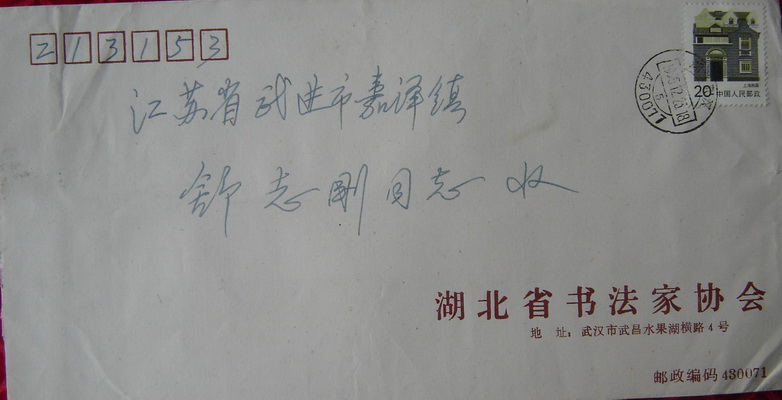 213153
江苏省武进市嘉泽镇
舒志刚同志 收
上海民居
20 中国人民邮政
430071
湖北省书法家协会
地 址：武汉市武昌水果湖横路4号
邮政编码 430071